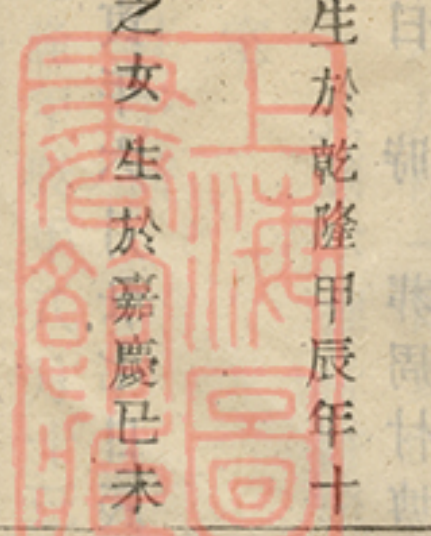 生於乾隆甲辰年十
之女生於嘉慶已未
上海圖書館藏